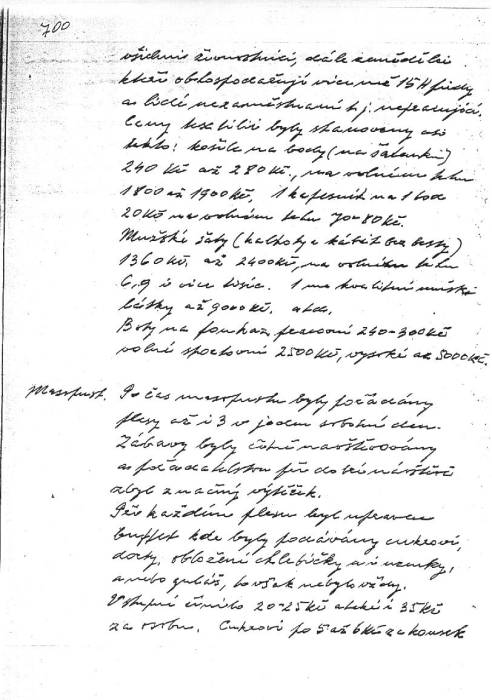 700
všichni živnostníci, dále zemědělci
kteří obhospodařují více než 15 H půdy
a lidé nezaměstnaní t.j. nepracující.
Ceny textilií byly stanoveny asi
takto: košile na body (na šatenki)
240 Kč až 280 Kč, na volném trhu
1800 až 1900 Kč, 1 kapesník na 1 bod
20 Kč na volném trhu 70-80 Kč.
Mužské šaty (kalhoty a kabát bez vesty)
1360 Kč, až 2400 Kč, na volném trhu
6, 9 i více tisíc. 1 m kvalitní mužské
látky až 9000 Kč. atd.
Boty na poukaz, pracovní 240-300 Kč
volné sportovní 2500 Kč, vysoké až 5000 Kč.
Masopust. Po čas masopustu byly pořádány
plesy až i 3 v jeden sobotní den.
Zábavy byly četně navštěvovány
a pořadatelstvu při dobré návštěvě
zbyl značný výtěžek.
Při každém plesu byl upraven
buffet kde byly podávány cukroví,
dorty, obložené chlebíčky a i uzenky,
anebo guláš, to však nebylo vždy.
Vstupné činilo 20-25 Kč a také i 35 Kč
za osobu. Cukroví po 5 až 6 Kč za kousek